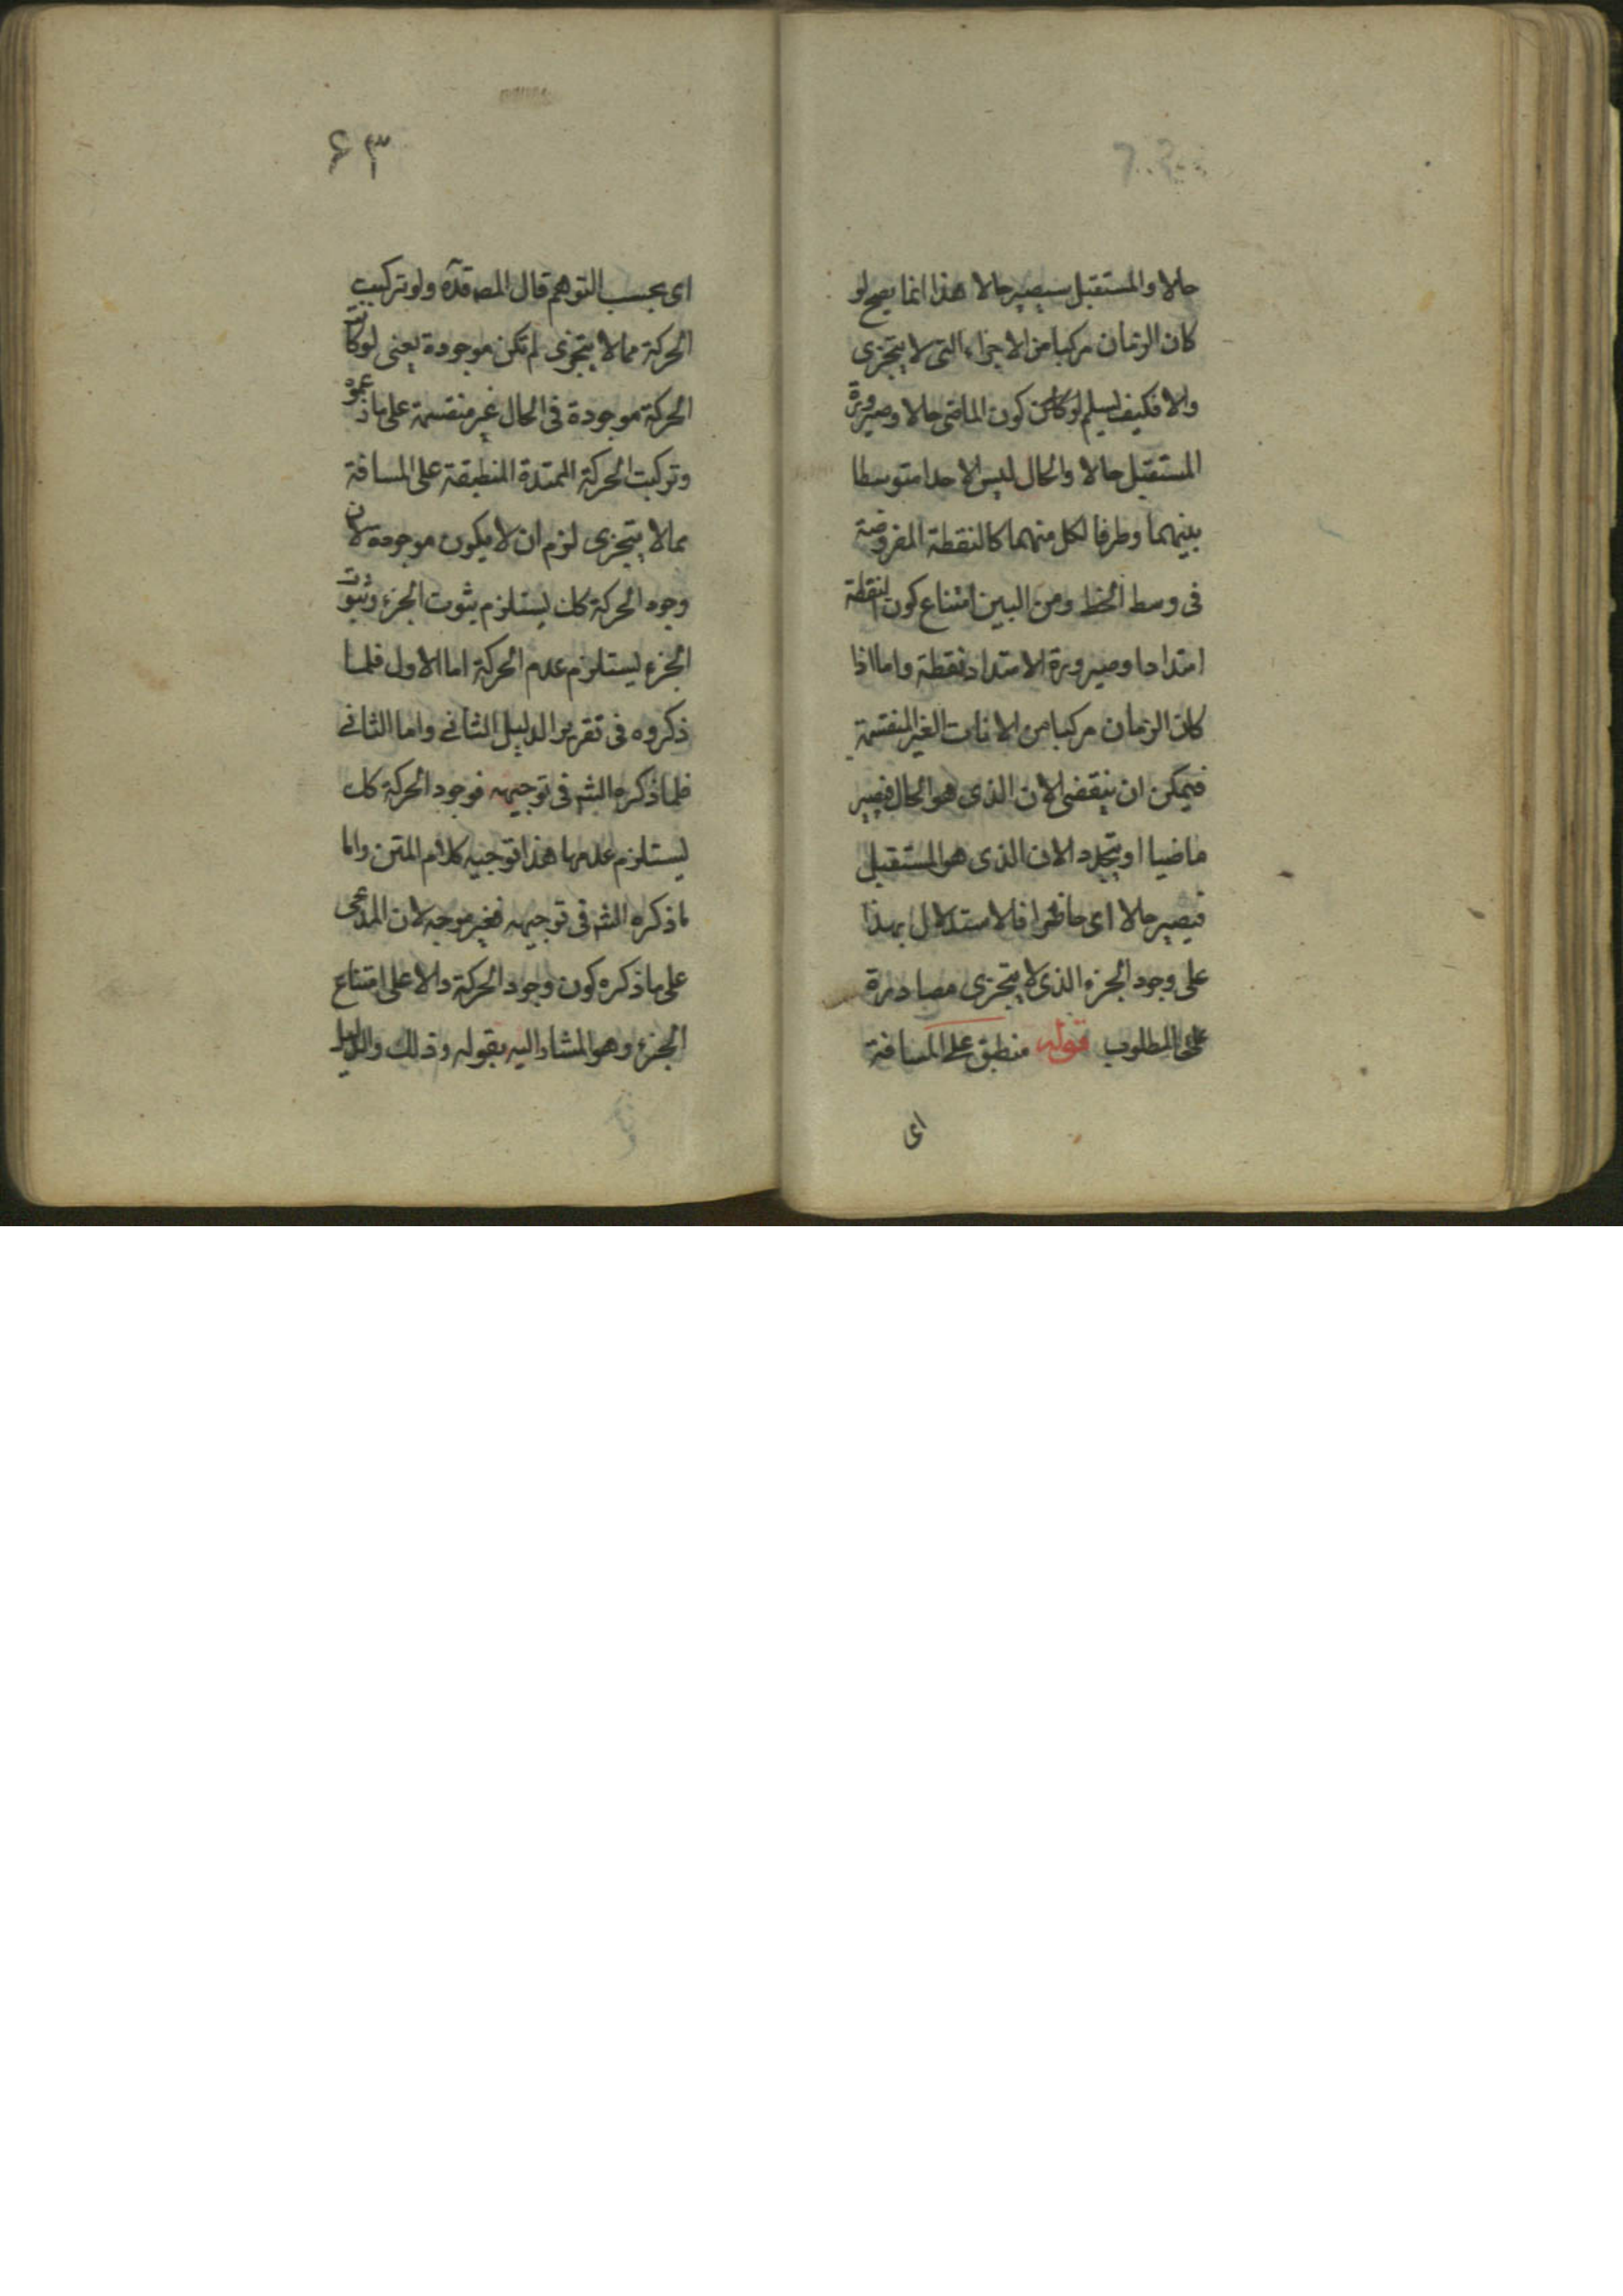 حالا والمستقبل سيصير حالا هذا انما يصح لو
كان الزمان مركبا من الاجزاء التى لا يتجزى
والا فكيف يسلم لو كان كون الماضى حالا وصيرورة
المستقبل حالا والحال ليس الا حدا متوسطا
بينهما وطرفا لكل منهما كالنقطة المفروضة
فى وسط الخط ومن البين امتناع كون النقطة
امتدادا وصيرورة الامتداد نقطة واما اذا
كان الزمان مركبا من الانات الغير المنقسمة
فيمكن ان ينقضى الان الذى هو الحال فيصير
ماضيا او يتجدد الان الذى هو المستقبل
فيصير حالا اى حاضرا فالاستدلال بهذا
على وجود الجزء الذى لا يتجزى مصادرة
على المطلوب قوله منطبق على المسافة
اى
۶۳
اى بحسب التوهم قال المصـ قده ولو تركبت
الحركة مما لا يتجزى لم تكن موجودة يعنى لو كانت
الحركة موجودة فى الحال غير منقسمة على ما ذ عمو
وتركبت الحركة الممتدة المنطبقة على المسافة
مما لا يتجزى لزم ان لا يكون موجودة لان
وجود الحركة كك يستلزم ثبوت الجزء وثبوت
الجزء يستلزم عدم الحركة اما الاول فلما
ذكروه فى تقرير الدليل الثانى واما الثانى
فلما ذكره الشـ فى توجيهه فوجود الحركة كك
يستلزم عدمها هذا توجيه كلام المتن واما
ما ذكره الشـ فى توجيهه فغير موجه لان المدعى
على ما ذكره كون وجود الحركة دالا على امتناع
الجزء وهو المشار اليه بقوله وذلك والدليل